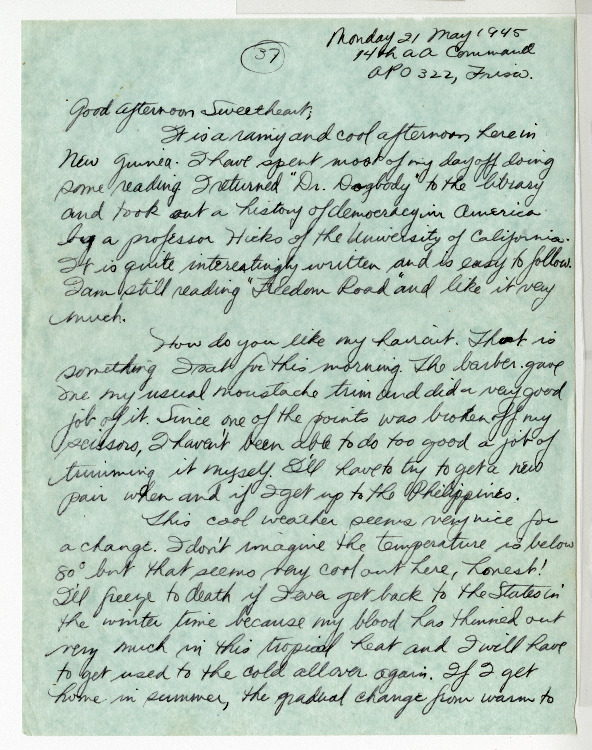 Monday 21 May 1945
14th AA Command
APO 322, Frisco.
37
Good afternoon Sweetheart;
It is a rainy and cool afternoon here in
New Guinea. I have spent most of my day off doing
some reading I returned "Dr. Dogbody" to the library
and took out a history of democracy in America
by a professor Hicks of the University of California.
It is quite interestingly written and is easy to follow.
I am still reading "Freedom Road" and like it very
much.
How do you like my haircut. That is
something I sat for this morning. The barber gave
me my usual moustache trim and did a very good
job of it. Since one of the points was broken off my
scissors, I haven't been able to do too good a job of
trimming it myself. I'll have to try to get a new
pair when and if I get up to the Philippines.
This cool weather seems very nice for
a change. I don't imagine the temperature is below
80° but that seems very cool out here, honest!
I'll freeze to death if I ever get back to the States in
the winter time because my blood has thinned out
very much in this tropical heat and I will have
to get used to the cold all over again. If I get
home in summer, the gradual change from warm to